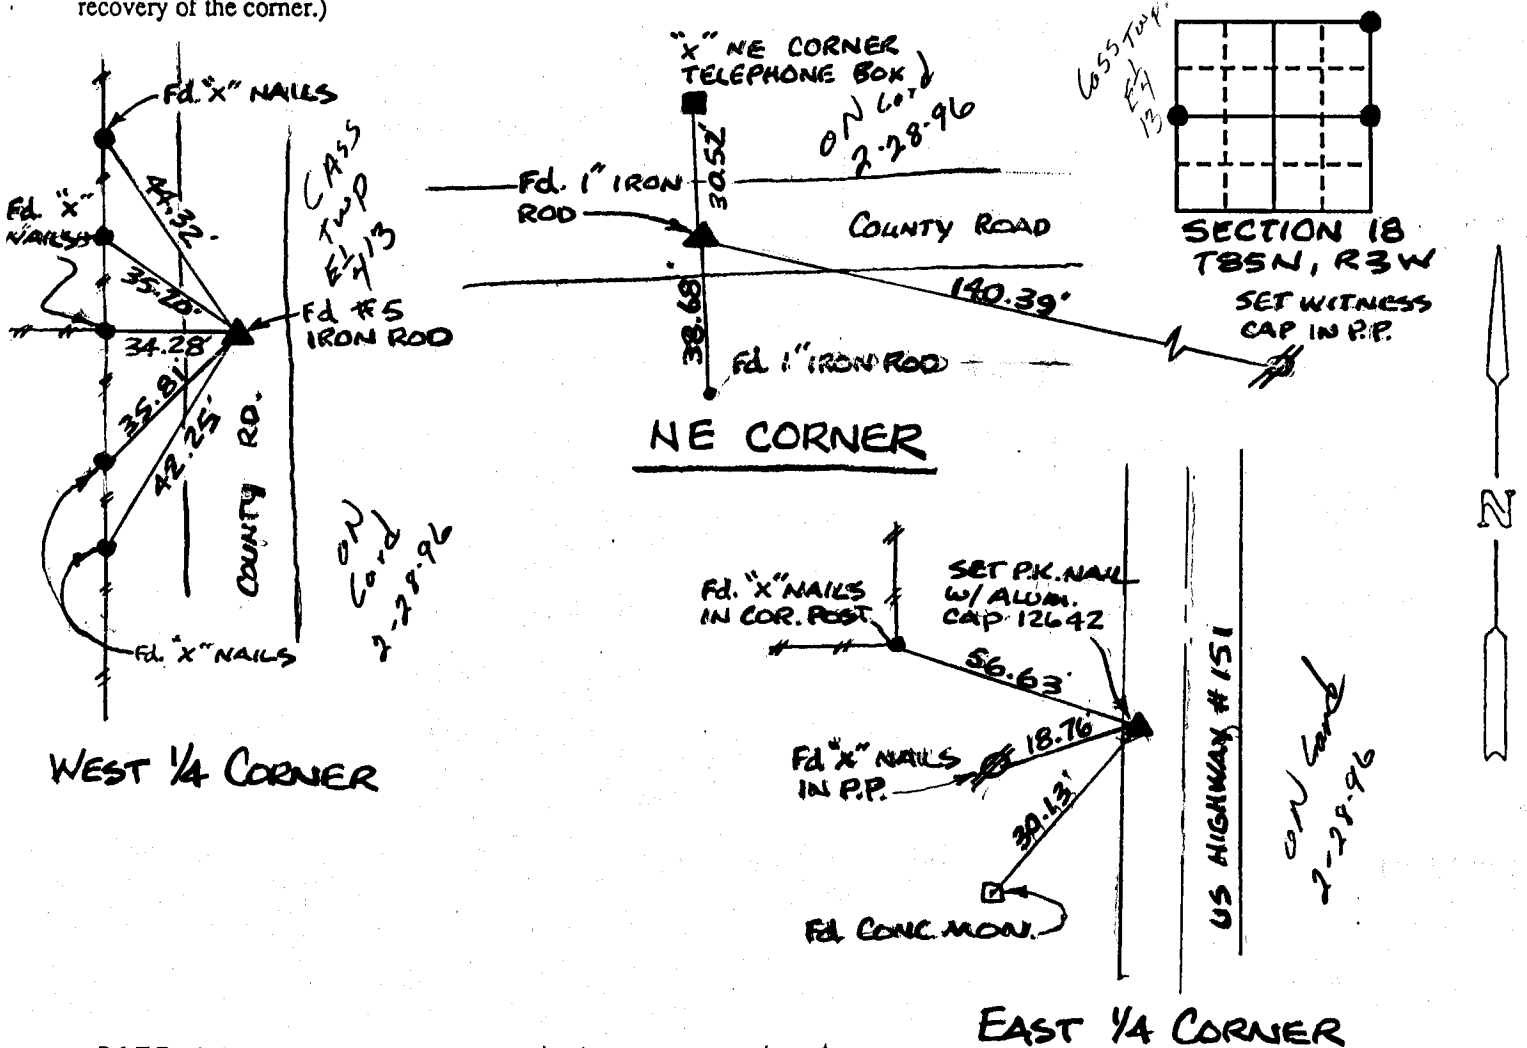 recovery of the corner.)
Fd. "X" NAILS
44.32'
Fd. "X"
NAILS
35.70'
34.28'
35.81'
42.25'
Fd #5
IRON ROD
COUNTY RD.
CASS
TWP
E 1/4 13
ON
Card
2-28-96
Fd. "X" NAILS
WEST 1/4 CORNER
"X" NE CORNER
TELEPHONE BOX
ON Card
2-28-96
30.52'
Fd. 1" IRON
ROD
COUNTY ROAD
38.68'
140.39'
Fd. 1" IRON ROD
SET WITNESS
CAP IN P.P.
NE CORNER
Cass Twp.
E 1/4
13
SECTION 18
T85N, R3W
N
Fd. "X" NAILS
IN COR. POST
SET P.K. NAIL
W/ ALUM.
CAP 12642
56.63'
18.76'
Fd "X" NAILS
IN P.P.
39.13'
Fd. CONC. MON.
US HIGHWAY #151
ON Card
2-28-96
EAST 1/4 CORNER